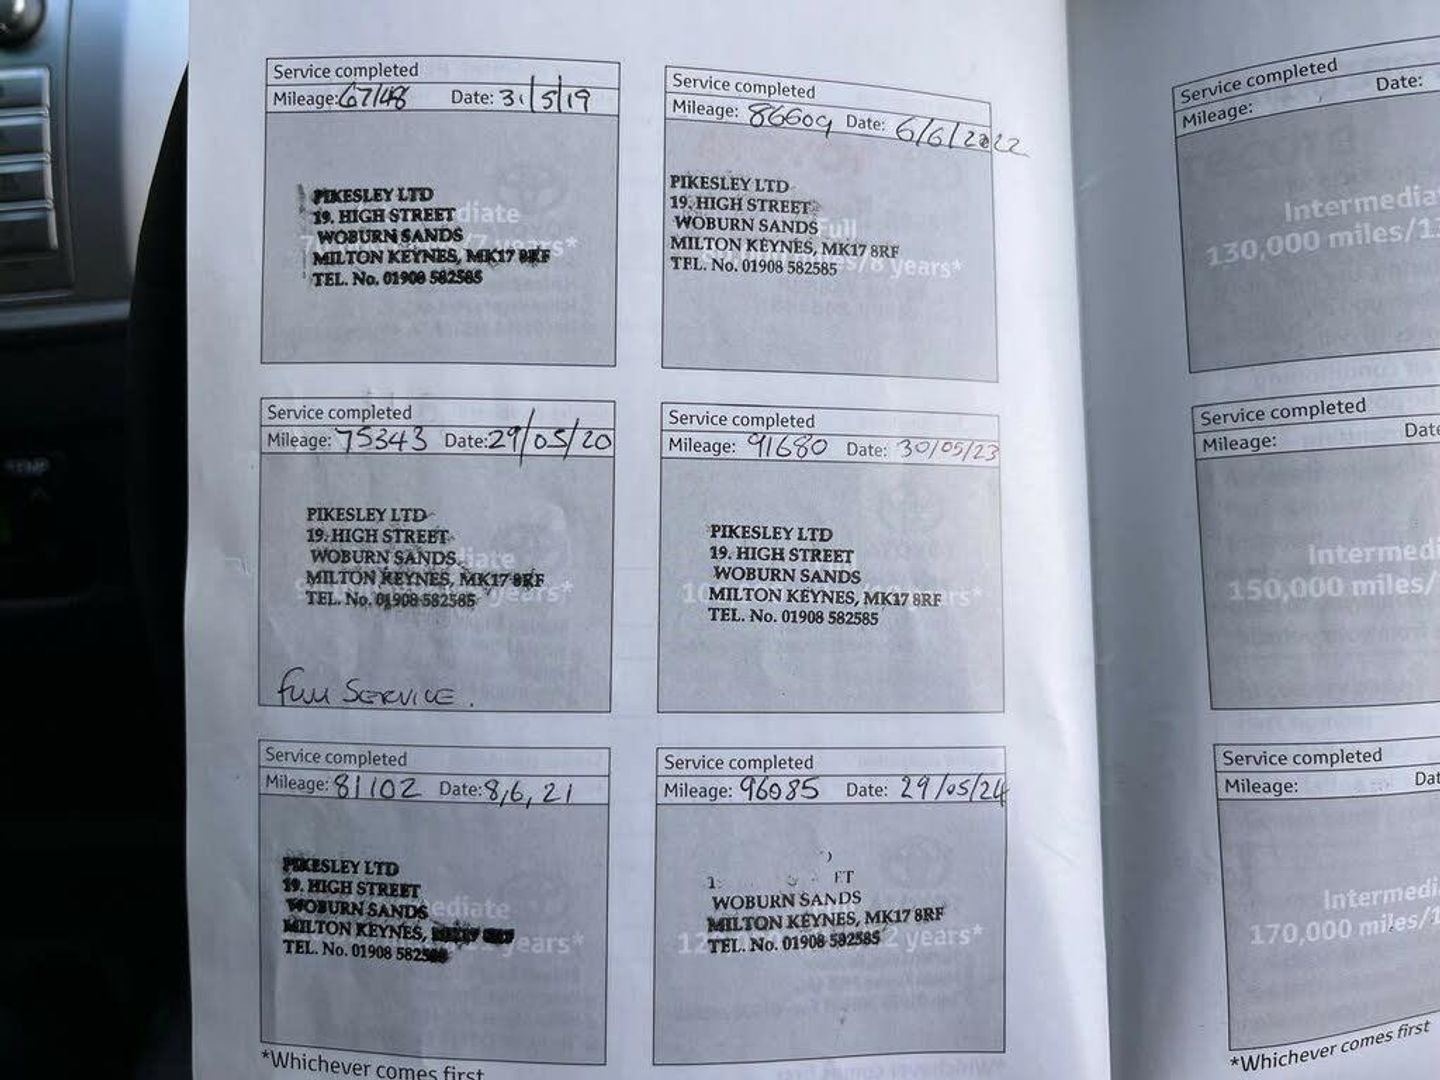 Service completed
Mileage: 67148 Date: 31/5/19
PIKESLEY LTD
19. HIGH STREET
WOBURN SANDS
MILTON KEYNES, MK17 8RF
TEL. No. 01908 582585
diate
years*
Service completed
Mileage: 75343 Date: 29/05/20
PIKESLEY LTD
19. HIGH STREET
WOBURN SANDS
MILTON KEYNES, MK17 8RF
TEL. No. 01908 582585
diate
years*
Full SERVICE.
Service completed
Mileage: 81102 Date: 8,6,21
PIKESLEY LTD
19. HIGH STREET
WOBURN SANDS
MILTON KEYNES,
TEL. No. 01908 582
ediate
years*
*Whichever comes first
Service completed
Mileage: 86609 Date: 6/6/2022
PIKESLEY LTD
19. HIGH STREET
WOBURN SANDS
MILTON KEYNES, MK17 8RF
TEL. No. 01908 582585
Full
es/8 years*
Service completed
Mileage: 91680 Date: 30/05/23
PIKESLEY LTD
19. HIGH STREET
WOBURN SANDS
MILTON KEYNES, MK17 8RF
TEL. No. 01908 582585
Service completed
Mileage: 96085 Date: 29/05/24
ET
WOBURN SANDS
MILTON KEYNES, MK17 8RF
TEL. No. 01908 582585
2 years*
Service completed
Mileage: Date:
Intermedia
130,000 miles/1
Service completed
Mileage: Date
Intermedi
150,000 miles/
Service completed
Mileage: Dat
Intermedi
170,000 miles/1
*Whichever comes first
TEMP